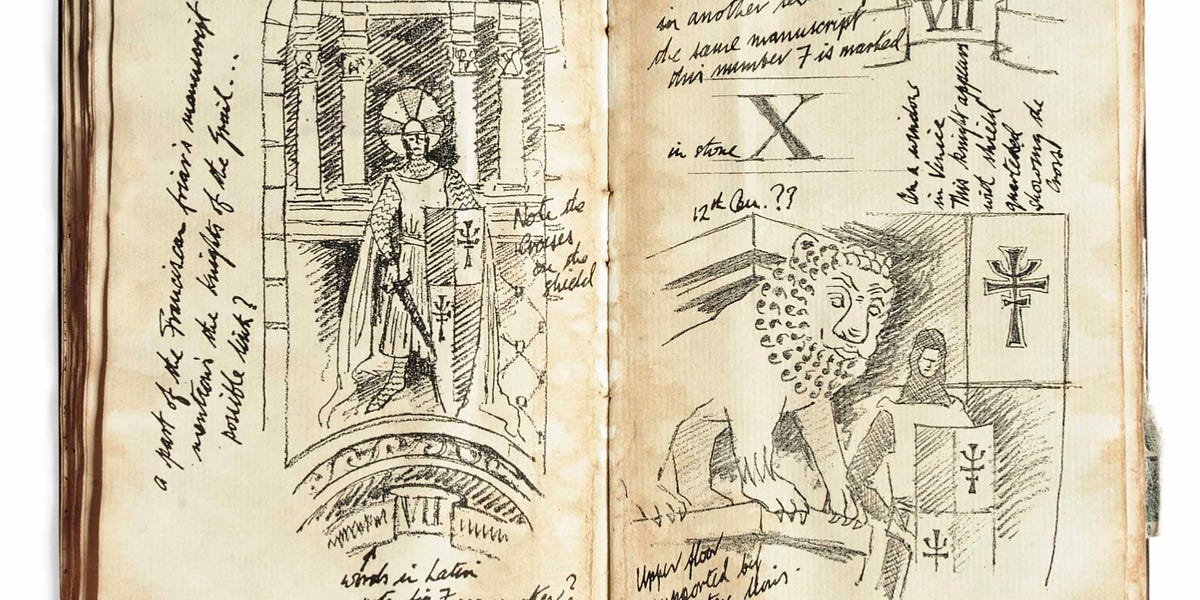 a part of the Franciscan friar's manuscript
mentions the knights of the Grail...
possible link?
Note the
Crosses
on the
shield
VII
words in Latin
?
in another
the same manuscript
this number 7 is marked
VII
in stone
X
On a window
in Venice
This knight appears
with shield
quartered
showing the
Cross
12th Cen. ??
Upper floor
supported by
lions.